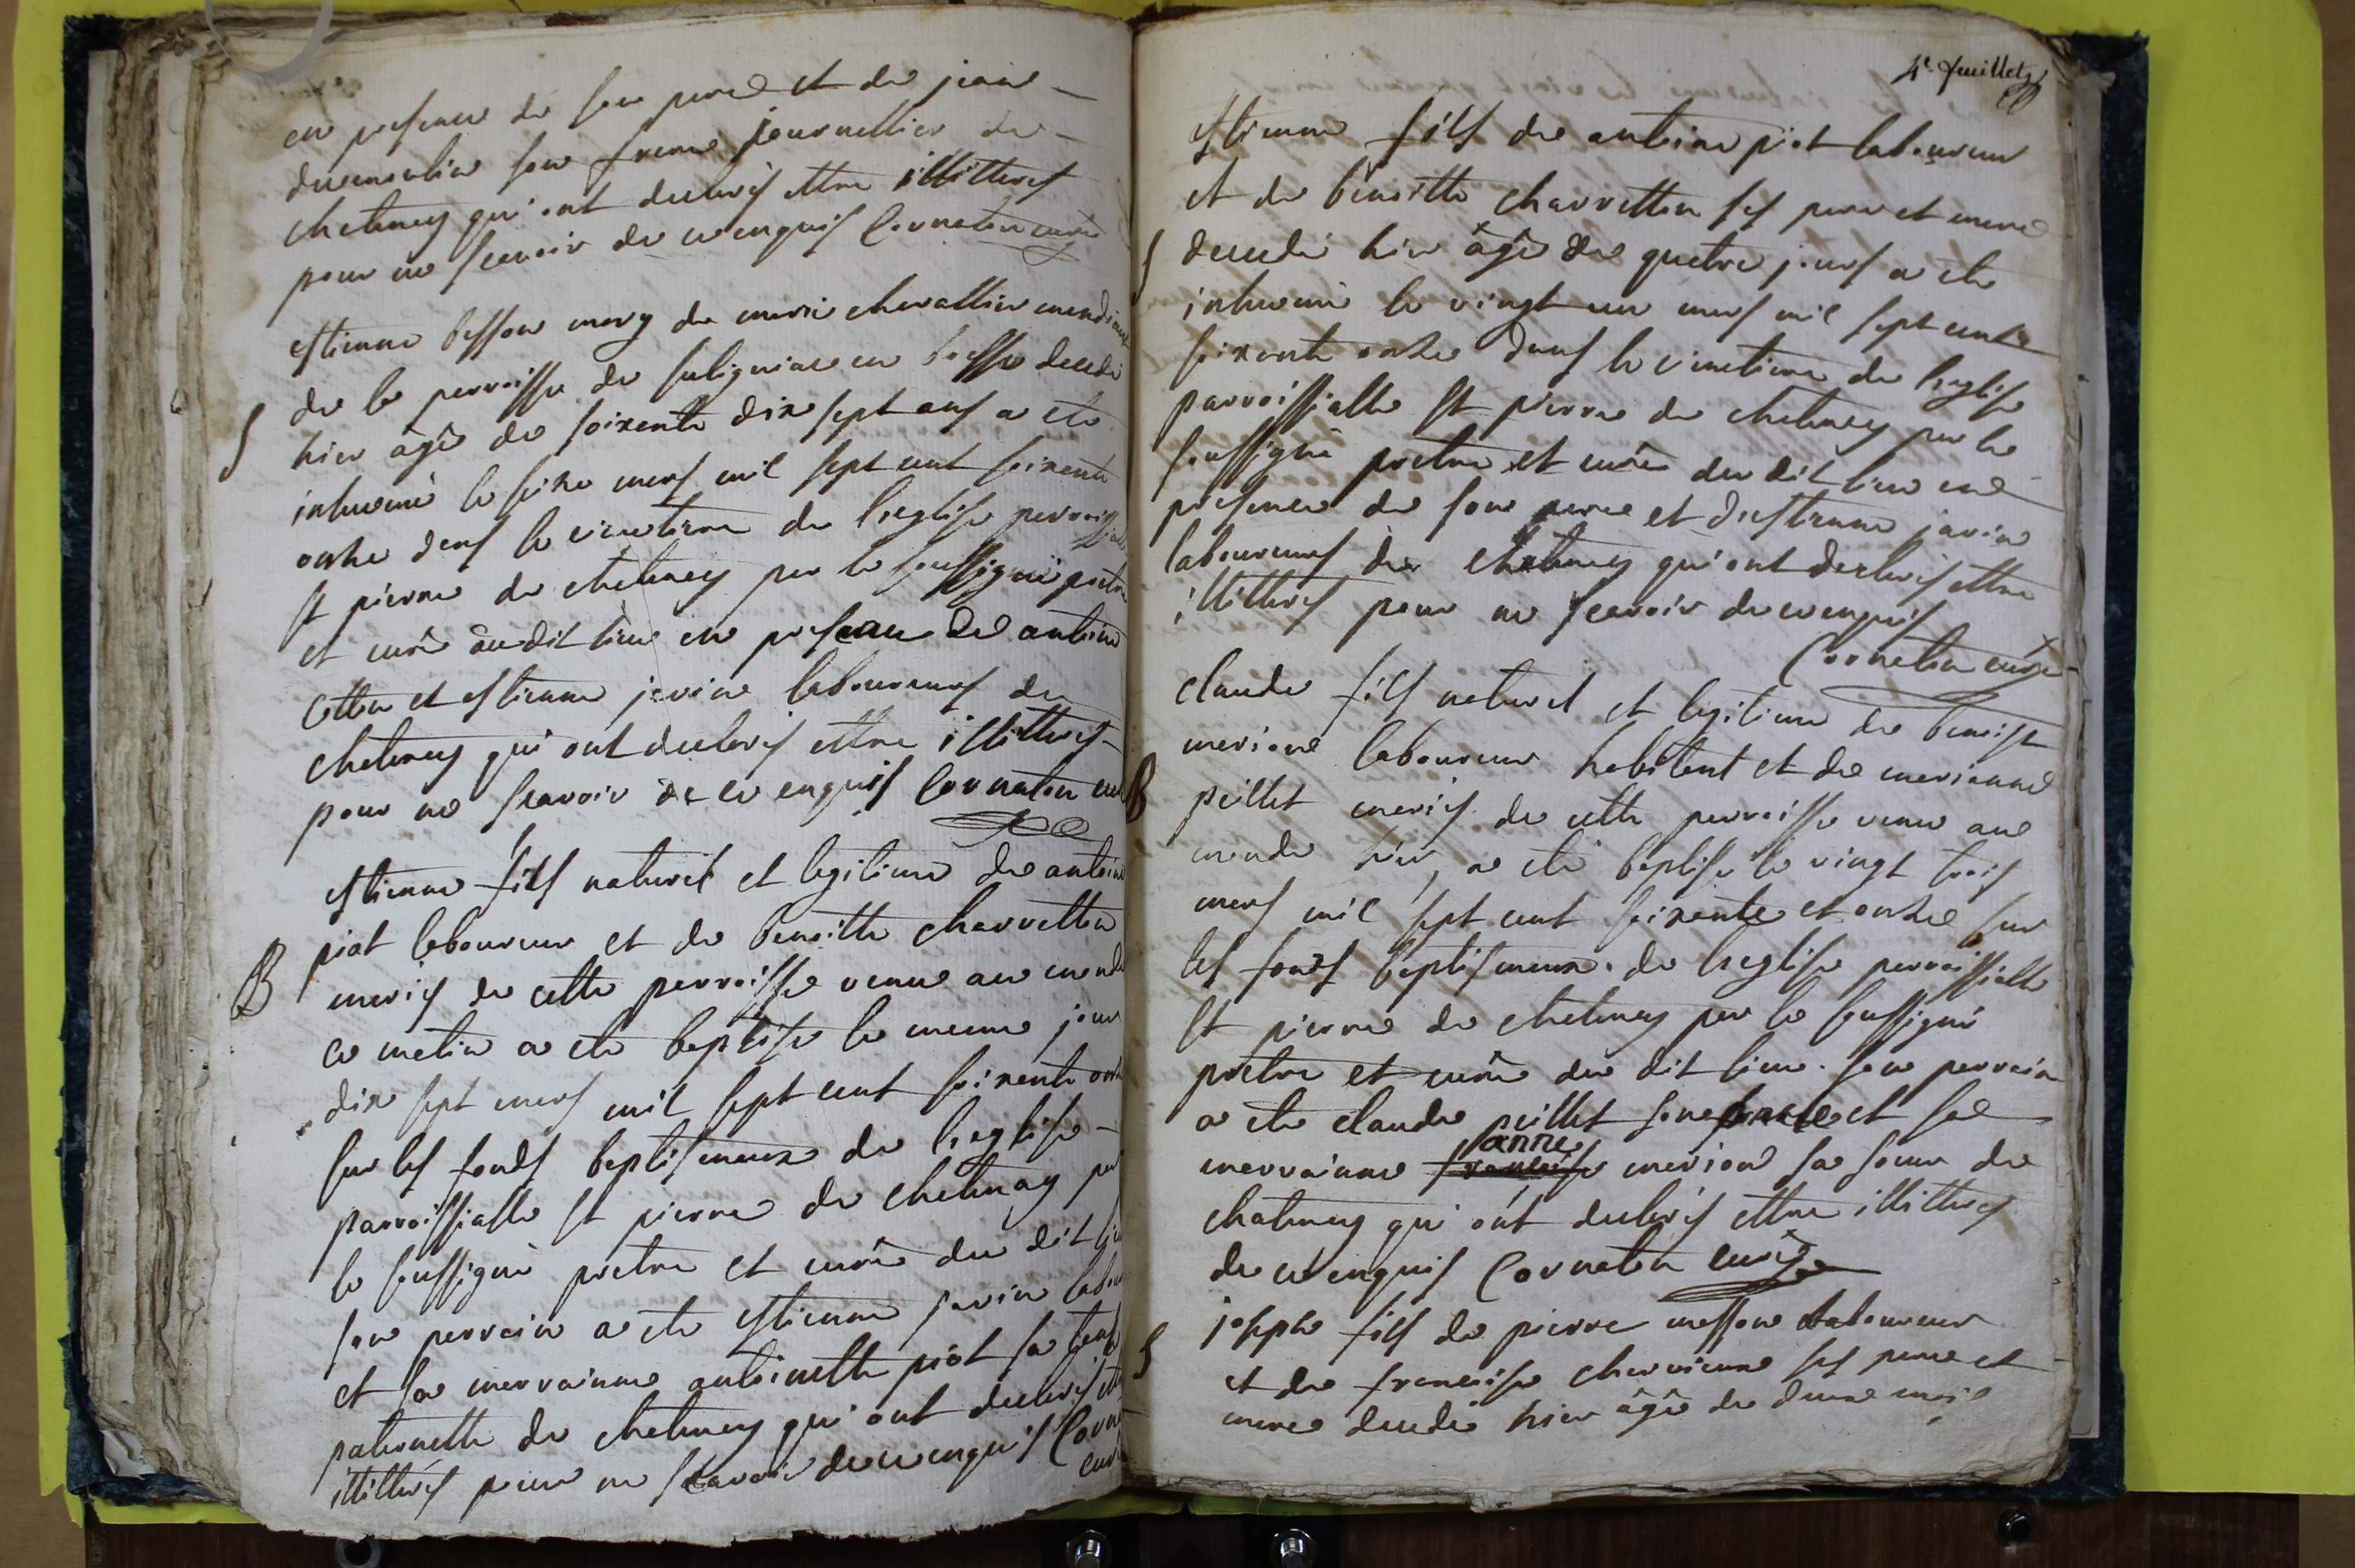 en presence de son pere et de jean
dumoulin son frere journellier de
chatenay qui ont declarés ettre illitterés
pour ne scavoir de ce enquis Cornaton curé
estienne besson mary de marie chevallier mendiant
de la parroisse de saligniat en bresse decedé
S
hier âgé de soixante dix sept ans a ete
inhumé le seize mars mil sept cent soixante
onze dans le cimetiere de l'eglise parroissialle
st pierre de chatenay par le soussigné pretre
et curé dudit lieu en presence de antoine
et estienne javin laboureurs de
chatenay qui ont declarés ettre illitterés
pour ne scavoir de ce enquis Cornaton curé
estienne fils naturel et legitime de antoine
piat laboureur et de benoitte charretton
B
mariés de cette parroisse venu au monde
ce matin a ete baptisé le meme jour
dix sept mars mil sept cent soixante onze
sur les fonds baptismaux de l'eglise
parroissialle st pierre de chatenay par
le soussigné pretre et curé du dit lieu
son parrain a ete estienne javin labour
et sa marrainne antoinette piat sa tante
paternelle de chatenay qui ont declarés ettre
illitterés pour ne scavoir de ce enquis Cornaton
curé
4e feuillet
estienne fils de antoine piat laboureur
et de benoitte charretton ses pere et mere
S
decedé hier âgé de quatre jours a ete
inhumé le vingt un mars mil sept cent
soixante onze dans le cimetiere de l'eglise
parroissialle st pierre de chatenay par le
soussigné pretre et curé du dit lieu en
presence de son pere et d'estienne javin
laboureurs de chatenay qui ont declarés ettre
illitterés pour ne scavoir de ce enquis
Cornaton curé
claude fils naturel et legitime de benoist
merione laboureur habitant et de marianne
B
pillet mariés de cette parroisse venu au
monde hier, a eté baptisé le vingt trois
mars mil sept cent soixante et onze sur
les fonds baptismaux de l'eglise parroissialle
st pierre de chatenay par le soussigné
pretre et curé du dit lieu. son parrain
a ete claude pillet son oncle et sa
anne
marrainne francoise merione sa soeur de
chatenay qui ont declarés ettre illitterés
de ce enquis Cornaton curé
S
joseph fils de pierre messon laboureur
et de francoise ses pere et
mere decedé hier âgé de deux mois